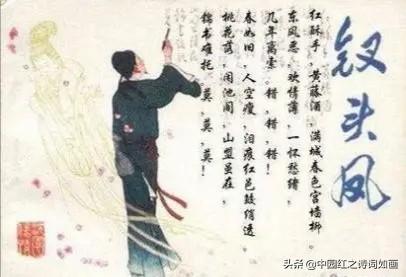 钗头凤
红酥手，黄藤酒，满城春色宫墙柳。
东风恶，欢情薄，一怀愁绪，
几年离索。错，错，错！
春如旧，人空瘦，泪痕红邑鲛绡透
桃花落，闲池阁，山盟虽在，
锦书难托。莫，莫，莫！
头条 @中园红之诗词如画